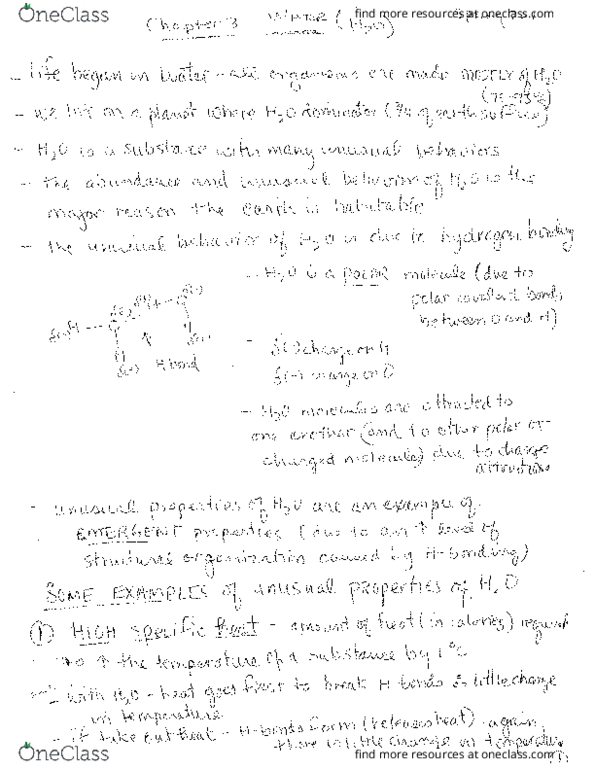 OneClass
find more resources at oneclass.com
Chapter 3 WATER (H₂O)
- life began in water - all organisms are made MOSTLY of H₂O
(70-95%)
- we live on a planet where H₂O dominates (3/4 of earth surface)
- H₂O is a substance with many unusual behaviors
- the abundance and unusual behavior of H₂O is the
major reason the earth is habitable
- the unusual behavior of H₂O is due to hydrogen bonding
- H₂O is a polar molecule (due to
polar covalent bonds
between O and H)
- δ(+) charge on H
δ(-) charge on O
H bond
- H₂O molecules are attracted to
one another (and to other polar or
charged molecules) due to charge
attractions
- unusual properties of H₂O are an example of
EMERGENT properties (due to an ↑ level of
structures organization caused by H-bonding)
SOME EXAMPLES of unusual properties of H₂O
① HIGH specific heat - amount of heat (in calories) required
to ↑ the temperature of a substance by 1°C
- with H₂O - heat goes first to break H-bonds ∴ little change
in temperature
- if take out heat - H-bonds form (releases heat) again,
there is little change in temperature
OneClass
find more resources at oneclass.com